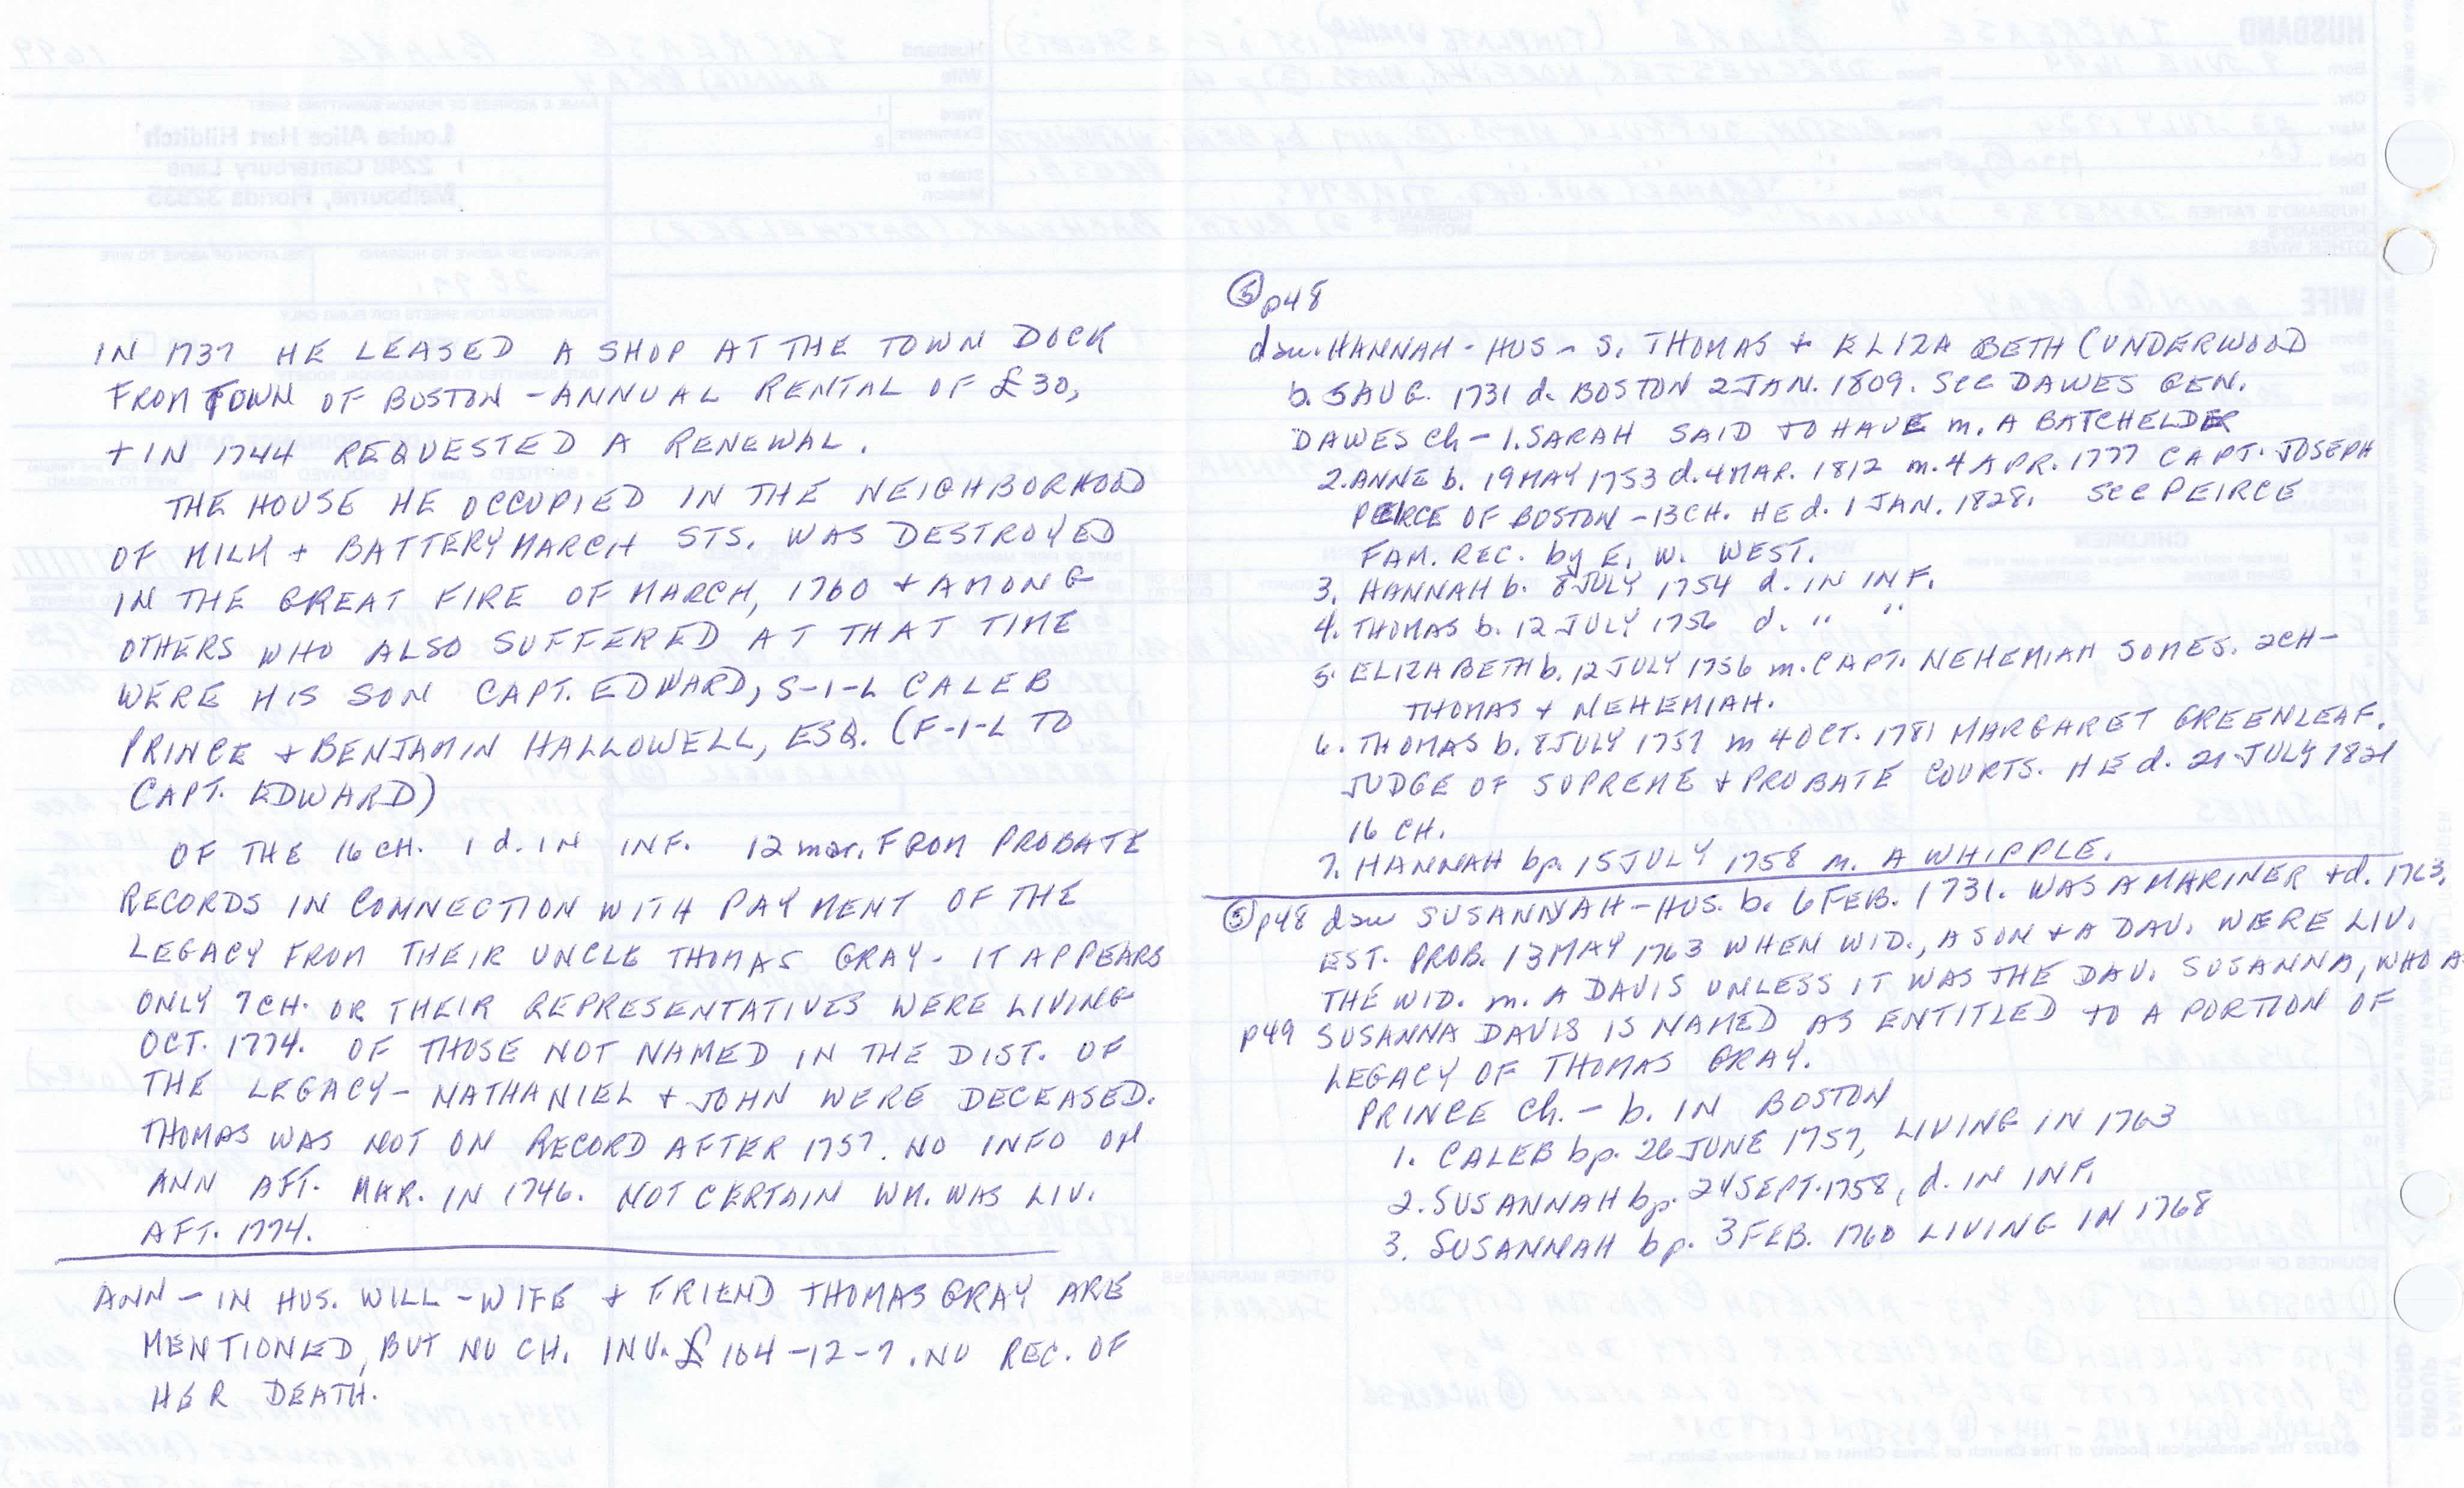 IN 1737 HE LEASED A SHOP AT THE TOWN DOCK
FROM TOWN OF BOSTON - ANNUAL RENTAL OF £30,
+ IN 1744 REQUESTED A RENEWAL.
THE HOUSE HE OCCUPIED IN THE NEIGHBORHOOD
OF MILK + BATTERYMARCH STS. WAS DESTROYED
IN THE GREAT FIRE OF MARCH, 1760 + AMONG
OTHERS WHO ALSO SUFFERED AT THAT TIME
WERE HIS SON CAPT. EDWARD, S-I-L CALEB
PRINCE + BENJAMIN HALLOWELL, ESQ. (F-I-L TO
CAPT. EDWARD)
OF THE 16 CH. 1 d. IN INF. 12 mar. FROM PROBATE
RECORDS IN CONNECTION WITH PAYMENT OF THE
LEGACY FROM THEIR UNCLE THOMAS GRAY - IT APPEARS
ONLY 7 CH. OR THEIR REPRESENTATIVES WERE LIVING
OCT. 1774. OF THOSE NOT NAMED IN THE DIST. OF
THE LEGACY - NATHANIEL + JOHN WERE DECEASED.
THOMAS WAS NOT ON RECORD AFTER 1757. NO INFO ON
ANN AFT. MAR. IN 1746. NOT CERTAIN WM. WAS LIV.
AFT. 1774.
ANN - IN HUS. WILL - WIFE + FRIEND THOMAS GRAY ARE
MENTIONED, BUT NO CH. INV. £ 104-12-7. NO REC. OF
HER DEATH.
⑤ p48
dau. HANNAH - HUS - S. THOMAS + ELIZABETH (UNDERWOOD
b. 5 AUG. 1731 d. BOSTON 2 JAN. 1809. See DAWES GEN.
DAWES Ch - 1. SARAH SAID TO HAVE m. A BATCHELDER
2. ANNE b. 19 MAY 1753 d. 4 MAR. 1812 m. 4 APR. 1777 CAPT. JOSEPH
PEIRCE OF BOSTON - 13 CH. HE d. 1 JAN. 1828. See PEIRCE
FAM. REC. by E. W. WEST.
3. HANNAH b. 8 JULY 1754 d. IN INF.
4. THOMAS b. 12 JULY 1756 d. " "
5. ELIZABETH b. 12 JULY 1756 m. CAPT. NEHEMIAH SOMES. 2 CH -
THOMAS + NEHEMIAH.
6. THOMAS b. 8 JULY 1757 m 4 OCT. 1781 MARGARET GREENLEAF.
JUDGE OF SUPREME + PROBATE COURTS. HE d. 21 JULY 1821
16 CH.
7. HANNAH bp. 15 JULY 1758 m. A WHIPPLE.
⑤ p48 dau SUSANNAH - HUS. b. 6 FEB. 1731. WAS A MARINER + d. 1763.
EST. PROB. 13 MAY 1763 WHEN WID., A SON + A DAU. WERE LIV.
THE WID. m. A DAVIS UNLESS IT WAS THE DAU. SUSANNA, WHO A
p49 SUSANNA DAVIS IS NAMED AS ENTITLED TO A PORTION OF
LEGACY OF THOMAS GRAY.
PRINCE Ch. - b. IN BOSTON
1. CALEB bp. 26 JUNE 1757, LIVING IN 1763
2. SUSANNAH bp. 24 SEPT. 1758, d. IN INF.
3. SUSANNAH bp. 3 FEB. 1760 LIVING IN 1768